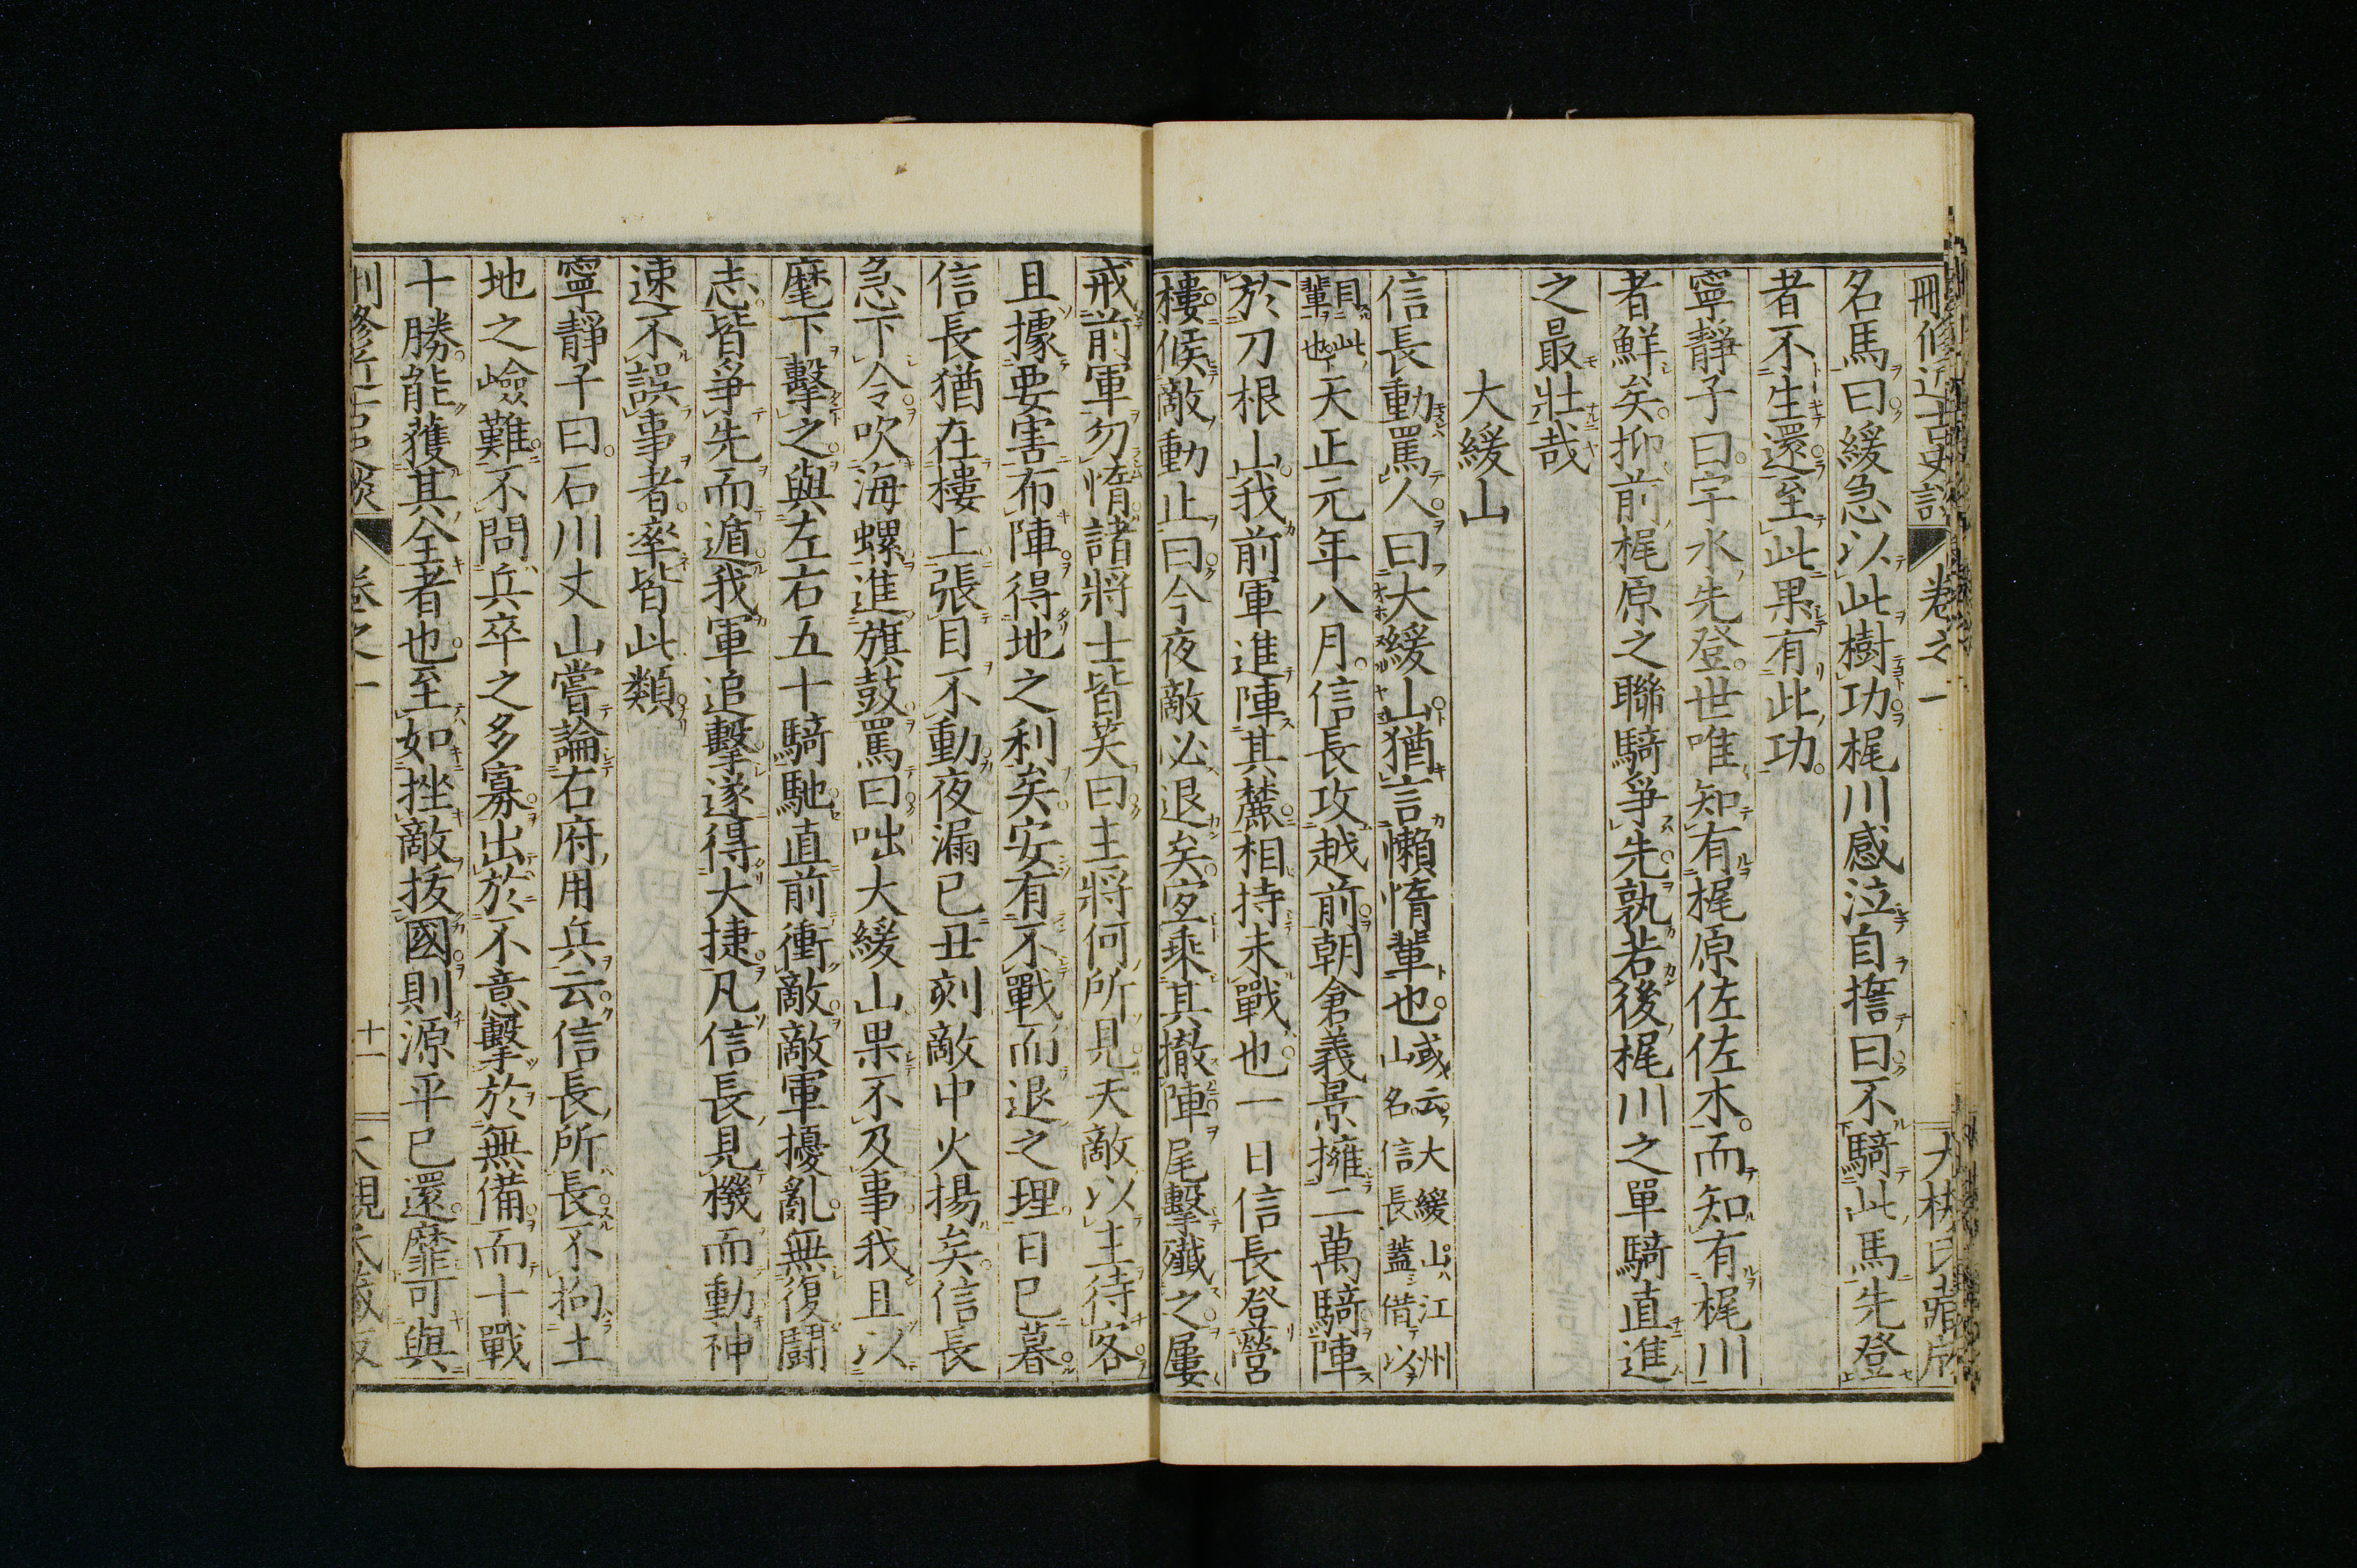 名馬曰緩急以此樹功梶川感泣自擔曰不騎此馬先登
者不生還至此果有此功
寧靜子曰宇水先登世唯知有梶原佐佐木而知有梶川
者鮮矣抑前梶原之聯騎爭先孰若後梶川之單騎直進
之最壯哉
大緩山
信長動罵人曰大緩山猶言懶惰輩也或云大緩山江州
山名信長蓋借以
目此
輩也天正元年八月信長攻越前朝倉義景擁二萬騎陣
於刀根山我前軍進陣其麓相持未戰也一日信長登營
樓候敵動止曰今夜敵必退矣宜乘其撤陣尾擊殲之屢
戒前軍勿惰諸將士皆笑曰主將何所見天敵以主待客
且據要害布陣得地之利矣安有不戰而退之理日已暮
信長猶在樓上張目不動夜漏已丑刻敵中火揚矣信長
急下令吹海螺進旗鼓罵曰咄大緩山果不及事我且以
麾下擊之與左右五十騎馳直前衝敵敵軍擾亂無復鬪
志皆爭先而遁我軍追擊遂得大捷凡信長見機而動神
速不誤事者率皆此類
寧靜子曰石川丈山嘗論右府用兵云信長所長不拘土
地之嶮難不問兵卒之多寡出於不意擊於無備而十戰
十勝能獲其全者也至如挫敵拔國則源平已還靡可與
卷之一
十一